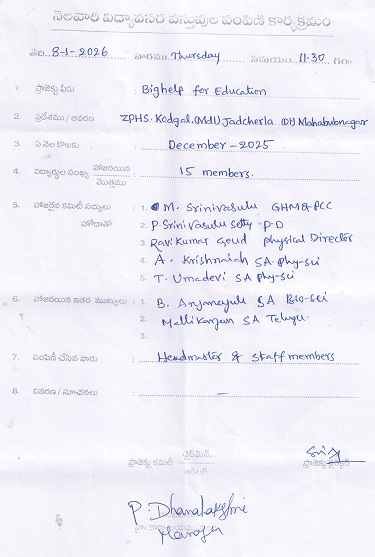 నెలవారీ విద్యావసర వస్తువుల పంపిణీ కార్యక్రమం
తేది. 8-1-2026 వారము Thursday సమయం 11-30 గం॥
1. ప్రాజెక్టు పేరు : Bighelp for Education
2. ప్రదేశము / ఆవరణ : ZPHS. Kodgal. (Mdl) Jadcherla (Dt) Mahabubnagar
3. ఏ నెల కొఱకు : December - 2025
4. విద్యార్థుల సంఖ్య హాజరయిన / మొత్తము : 15 members.
5. హాజరైన కమిటీ సభ్యులు : 1. M. Srinivasulu GHM & PCC
హోదాతో 2. P. Srinivasulu Setty - P.D
3. Ravi Kumar Goud physical Director
4. A. Krishnaiah SA. Phy-sci
5. T. Umadevi SA Phy-sci
6. హాజరయిన ఇతర ముఖ్యులు : 1. B. Anjaneyulu SA Bio-sci
2. Mallikarjun SA Telugu.
3.
7. పంపిణీ చేసిన వారు : Headmaster & Staff members
8. వివరణ / సూచనలు : —
ప్రాజెక్టు కమిటీ ఛైర్మెన్,
P. Dhanalakshmi